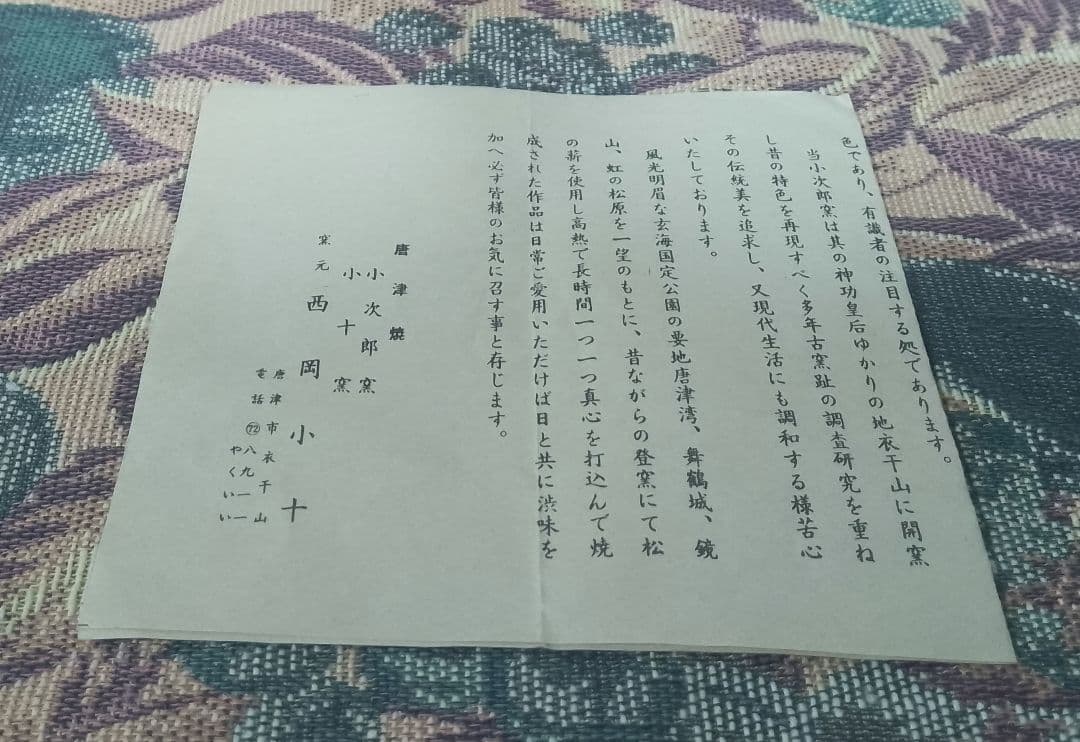 色であり、有識者の注目する処であります。
当小次郎窯は其の神功皇后ゆかりの地衣干山に開窯
し昔の特色を再現すべく多年古窯趾の調査研究を重ね
その伝統美を追求し、又現代生活にも調和する様苦心
いたしております。
風光明眉な玄海国定公園の要地唐津湾、舞鶴城、鏡
山、虹の松原を一望のもとに、昔ながらの登窯にて松
の薪を使用し高熱で長時間一つ一つ真心を打込んで焼
成された作品は日常ご愛用いただけば日と共に渋味を
加へ必ず皆様のお気に召す事と存じます。
唐津焼
小次郎窯
小十窯
窯元 西岡小十
唐津市衣干山
電話㋆八九一一
やくいい